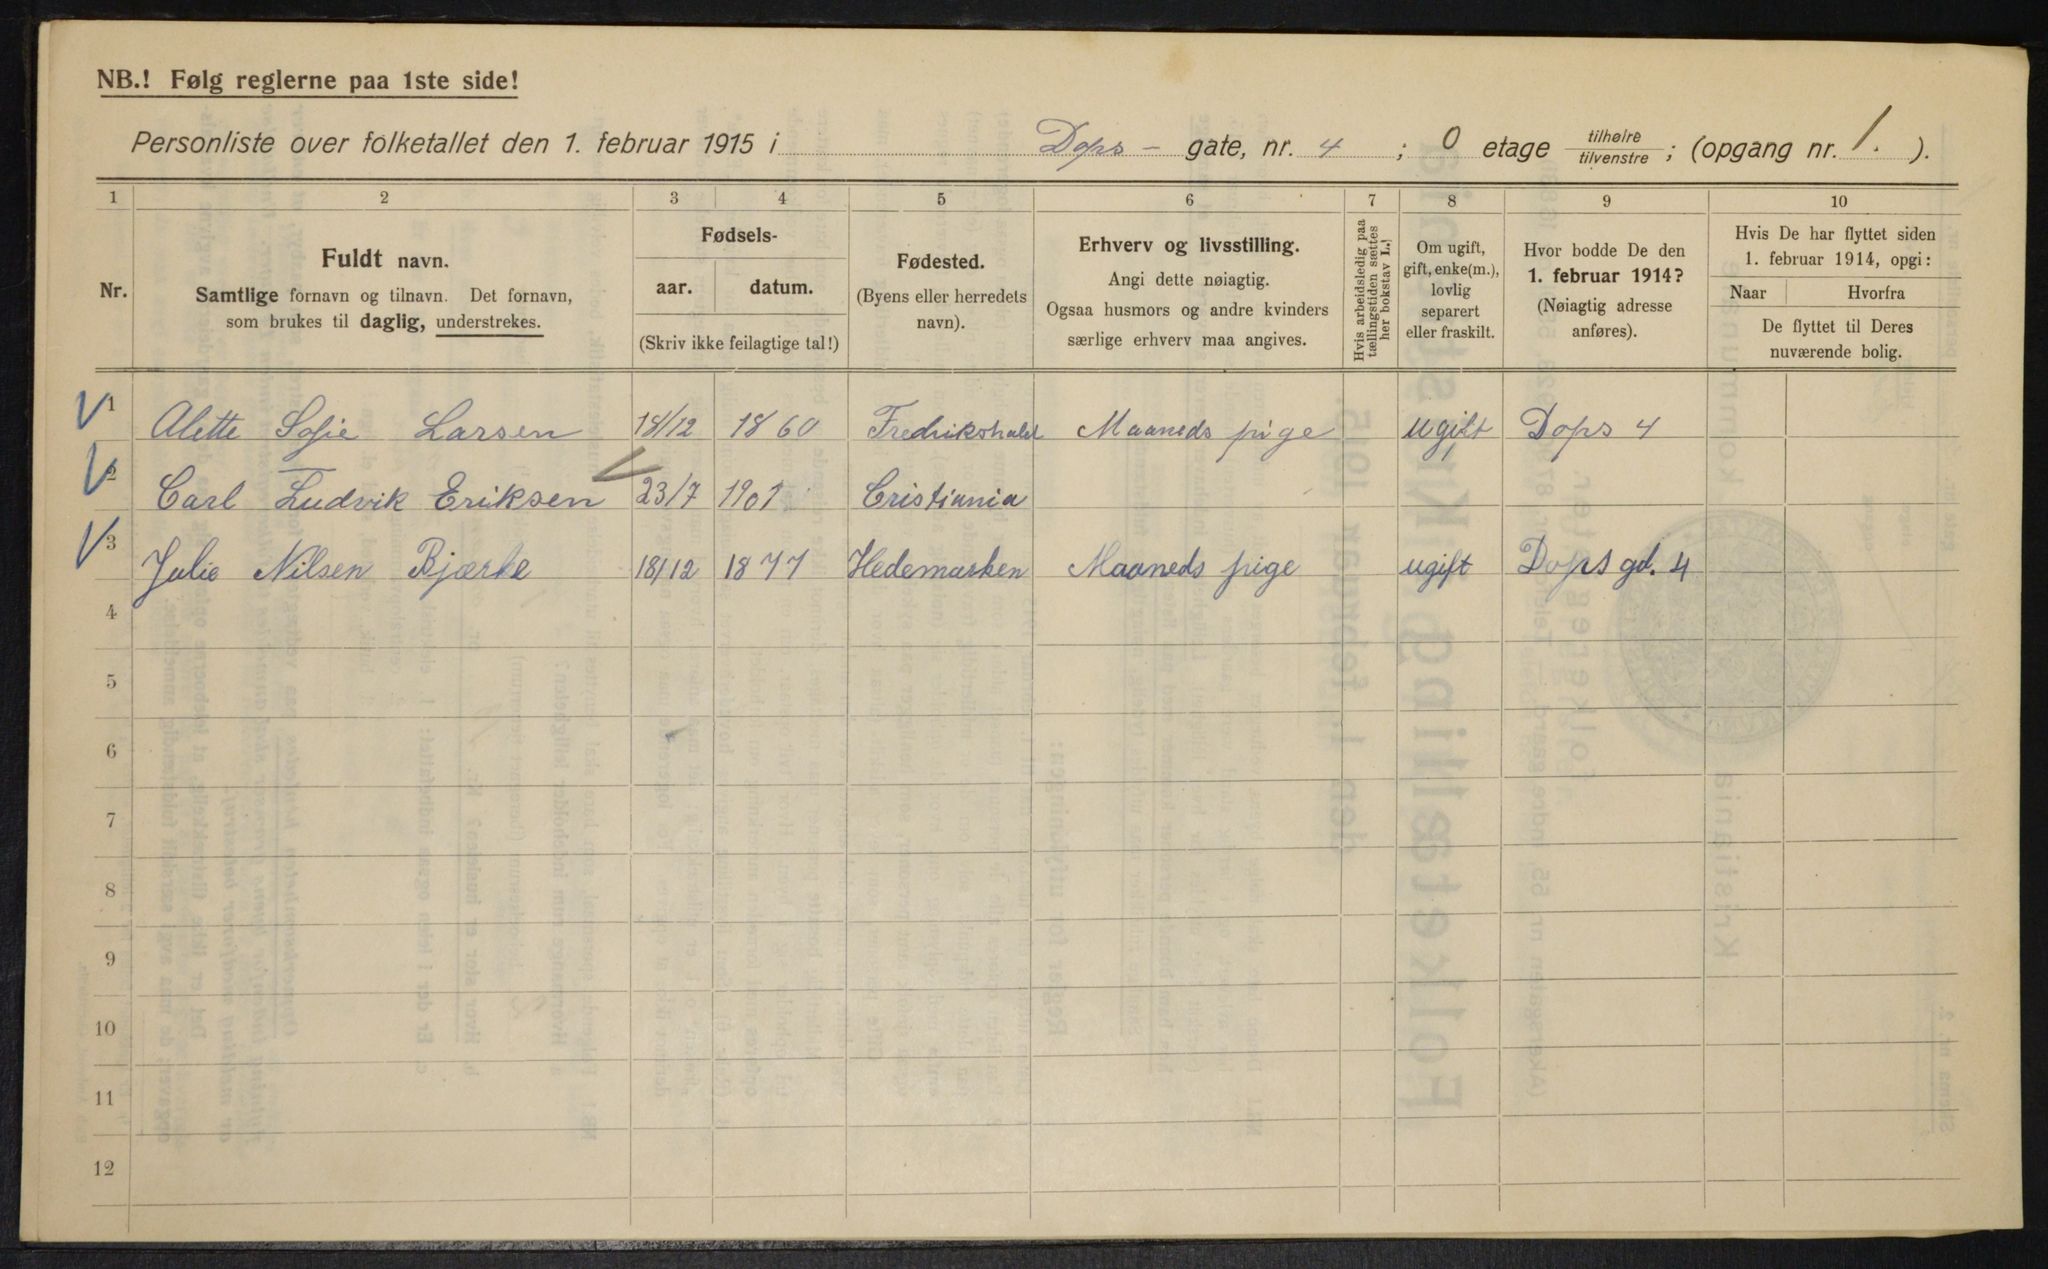 NB.! Følg reglerne paa 1ste side!
Personliste over folketallet den 1. februar 1915 i Dops- gate, nr. 4 ; 0 etage tilhøire tilvenstre ; (opgang nr. 1. ).
1 2 3 4 5 6 7 8 9 10
Nr.
Fuldt navn.
Samtlige fornavn og tilnavn. Det fornavn,
som brukes til daglig, understrekes.
Fødsels-
aar. datum.
(Skriv ikke feilagtige tal!)
Fødested.
(Byens eller herredets
navn).
Erhverv og livsstilling.
Angi dette nøiagtig.
Ogsaa husmors og andre kvinders
særlige erhverv maa angives.
Hvis arbeidsledig paa
tællingstiden sættes
her bokstav L.)
Om ugift,
gift, enke(m.),
lovlig
separert
eller fraskilt.
Hvor bodde De den
1. februar 1914?
(Nøiagtig adresse
anføres).
Hvis De har flyttet siden
1. februar 1914, opgi:
Naar Hvorfra
De flyttet til Deres
nuværende bolig.
1 Alette Sofie Larsen 18/12 1860 Fredrikshald Maaneds pige ugift Dops 4
2 Carl Ludvik Eriksen 23/7 1901 Cristiania
3 Julie Nilsen Bjærke 18/12 1877 Hedemarken Maaneds pige ugift Dops gd. 4
4
5
6
7
8
9
10
11
12